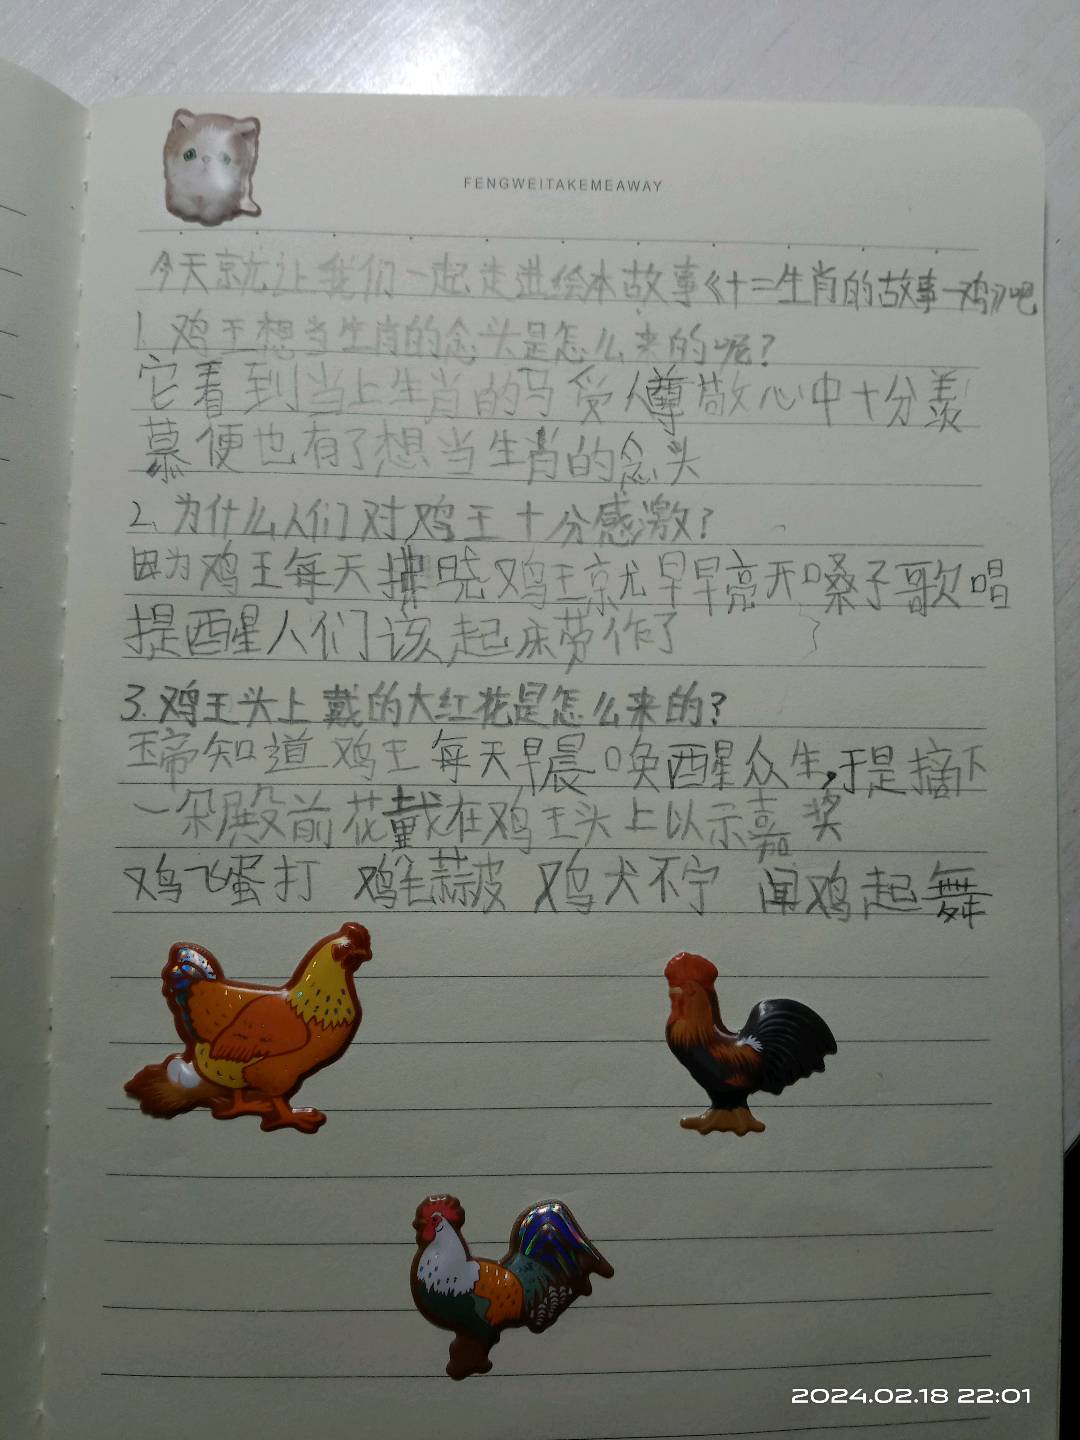 FENGWEITAKEMEAWAY
今天就让我们一起走进绘本故事《十二生肖的故事—鸡》吧
1. 鸡王想当生肖的念头是怎么来的呢?
它看到当上生肖的马受人尊敬心中十分羡
慕便也有了想当生肖的念头
2. 为什么人们对鸡王十分感激?
因为鸡王每天拂晓鸡王就早早亮开嗓子歌唱
提醒人们该起床劳作了
3. 鸡王头上戴的大红花是怎么来的?
玉帝知道鸡王每天早晨唤醒众生,于是摘下
一朵殿前花戴在鸡王头上以示嘉奖
鸡飞蛋打 鸡毛蒜皮 鸡犬不宁 闻鸡起舞
2024.02.18 22:01